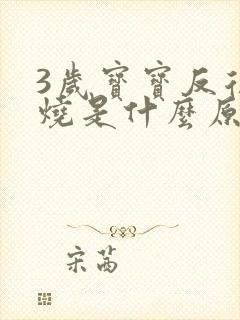 3歲寶寶反彳
燒是什麼原
宋茜